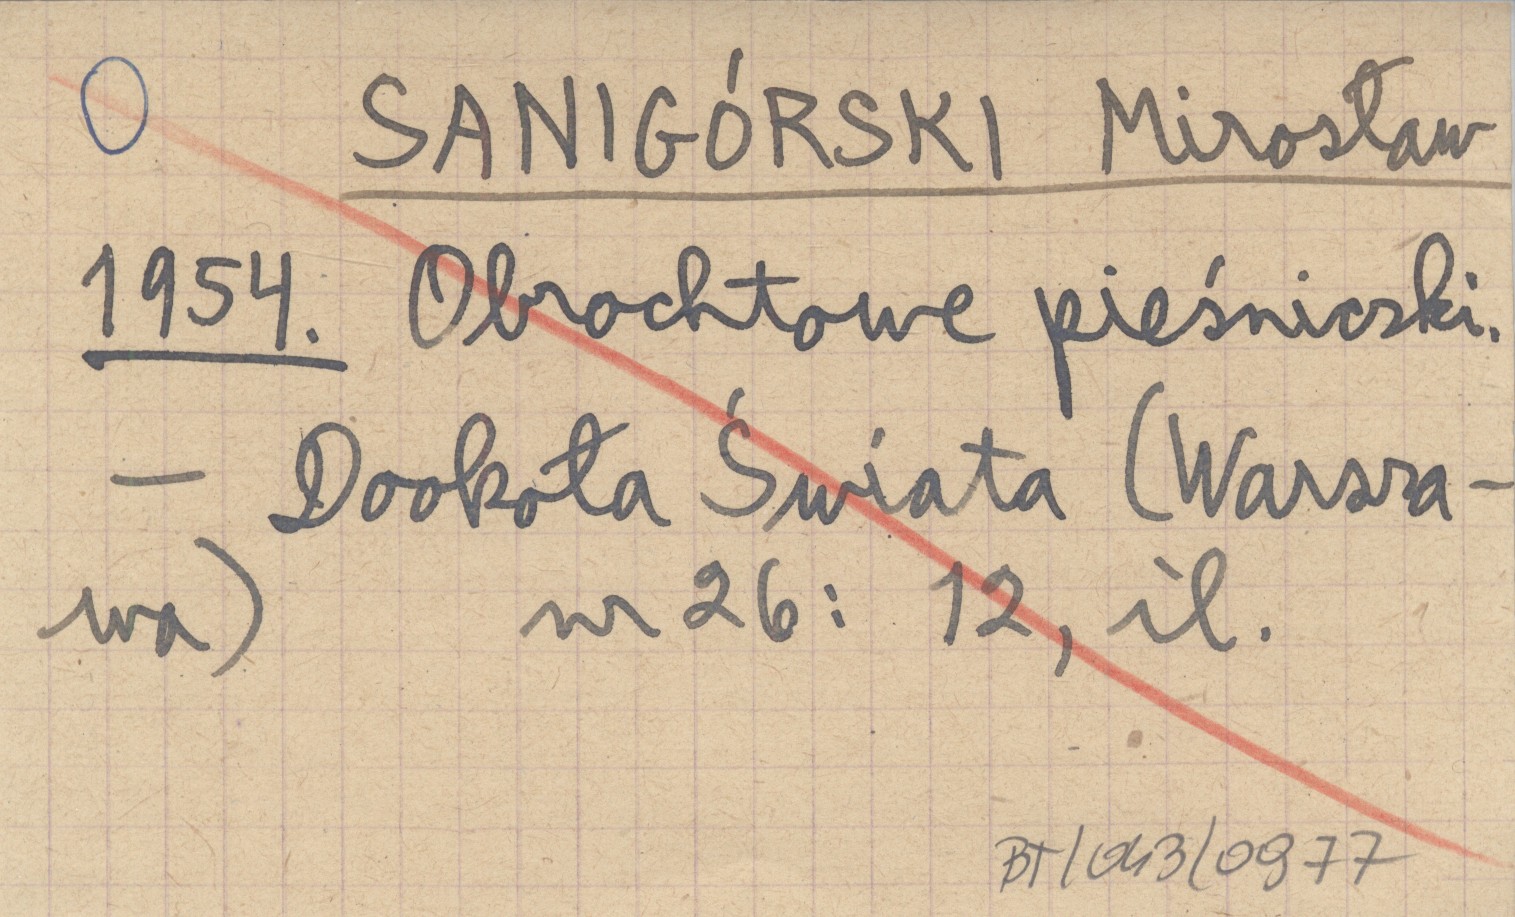 O SANIGÓRSKI Mirosław
1954. Obrochtowe pieśniczki.
— Dookoła Świata (Warsza-
wa) nr 26: 12, il.
BT/043/0977